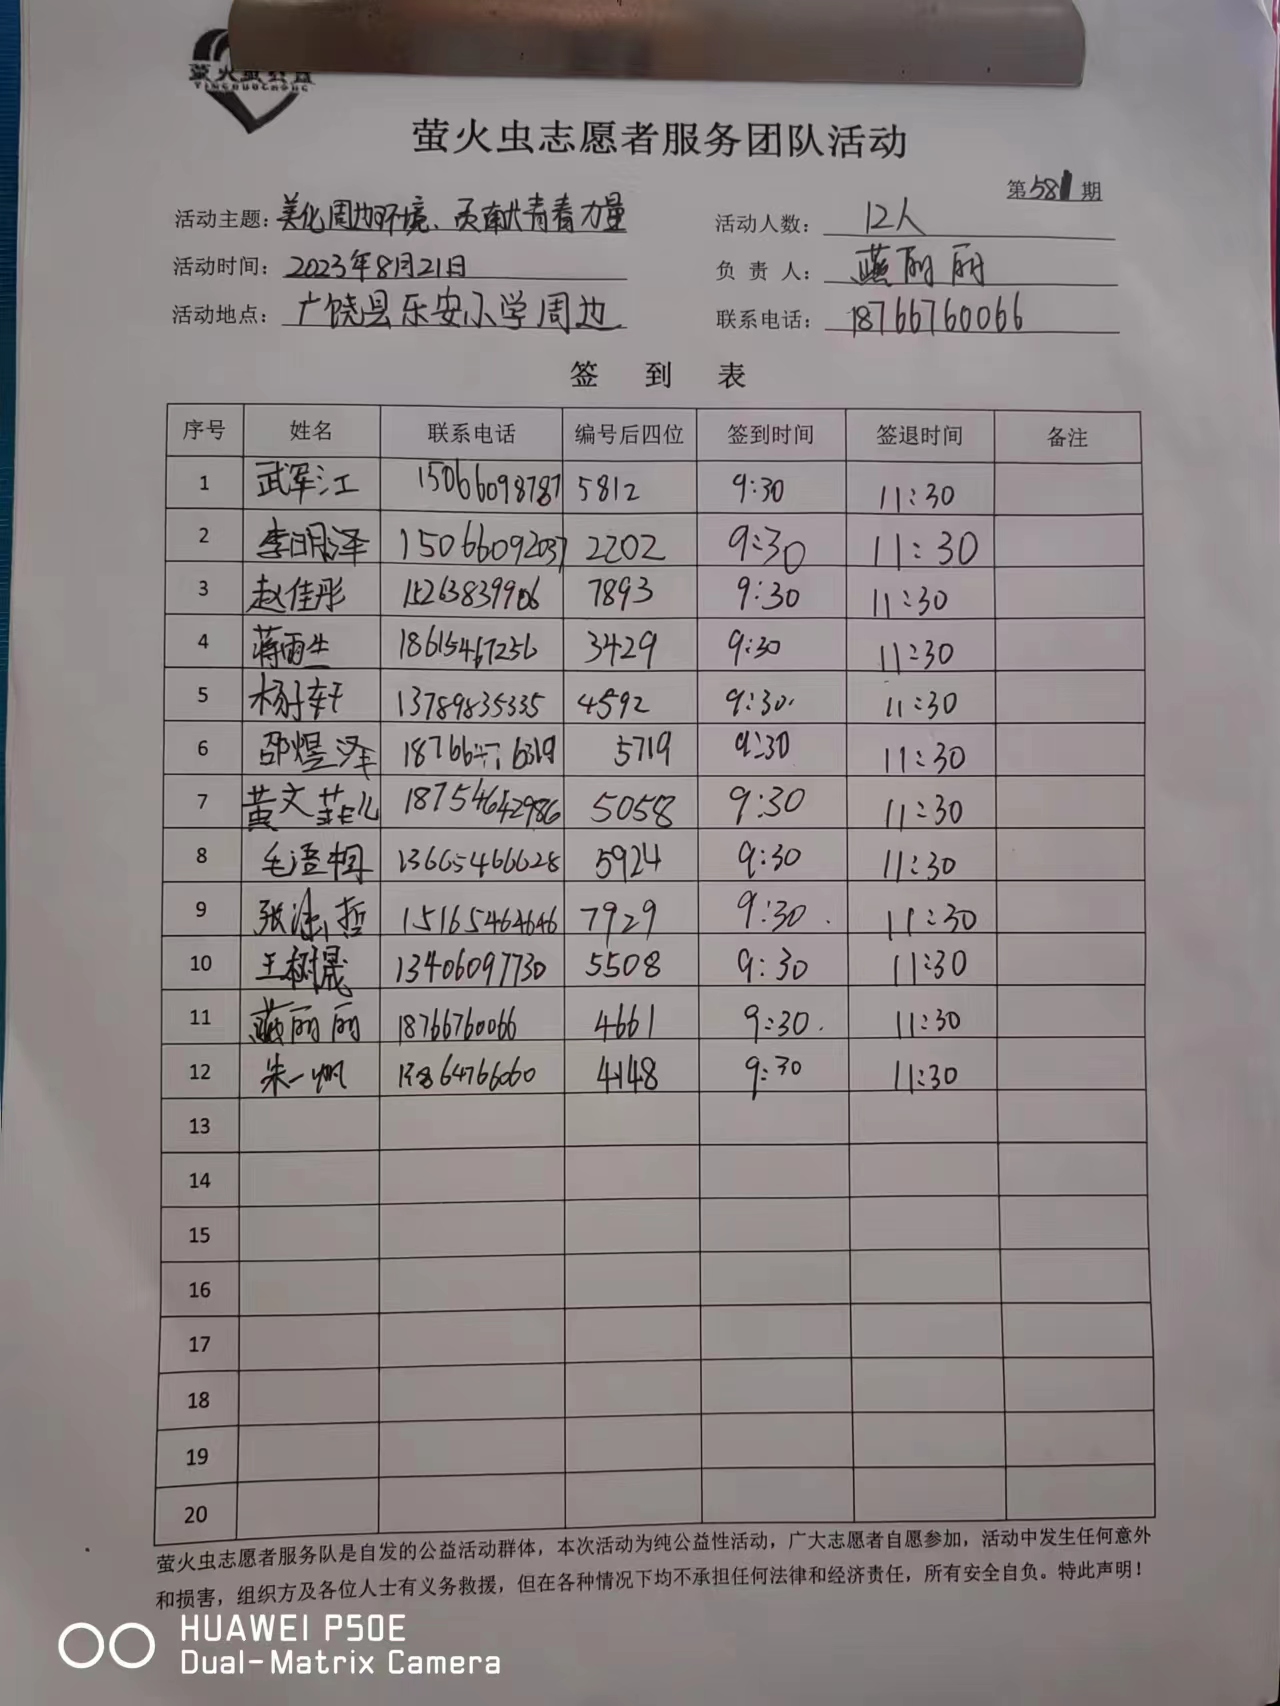 萤火虫公益
YINGHUOCHONG
萤火虫志愿者服务团队活动
第581期
活动主题: 美化周边环境、贡献青春力量 活动人数: 12人
活动时间: 2023年8月21日 负责人: 燕丽丽
活动地点: 广饶县乐安小学周边 联系电话: 18766760066
签到表
序号 姓名 联系电话 编号后四位 签到时间 签退时间 备注
1 武军江 15066098787 5812 9:30 11:30
2 李明泽 15066092037 2202 9:30 11:30
3 赵佳彤 15263839906 7893 9:30 11:30
4 蒋雨生 18615467256 3429 9:30 11:30
5 杨轩 13789835335 4592 9:30 11:30
6 邵煜泽 5719 9:30 11:30
7 黄文菲儿 18754642986 5058 9:30 11:30
8 毛语桐 13665466628 5924 9:30 11:30
9 张哲 15165464646 7929 9:30 11:30
10 王树晟 13406097730 5508 9:30 11:30
11 燕丽丽 18766760066 4661 9:30 11:30
12 朱一帆 4148 9:30 11:30
13
14
15
16
17
18
19
20
萤火虫志愿者服务队是自发的公益活动群体，本次活动为纯公益性活动，广大志愿者自愿参加，活动中发生任何意外
和损害，组织方及各位人士有义务救援，但在各种情况下均不承担任何法律和经济责任，所有安全自负。特此声明！
HUAWEI P50E
Dual-Matrix Camera